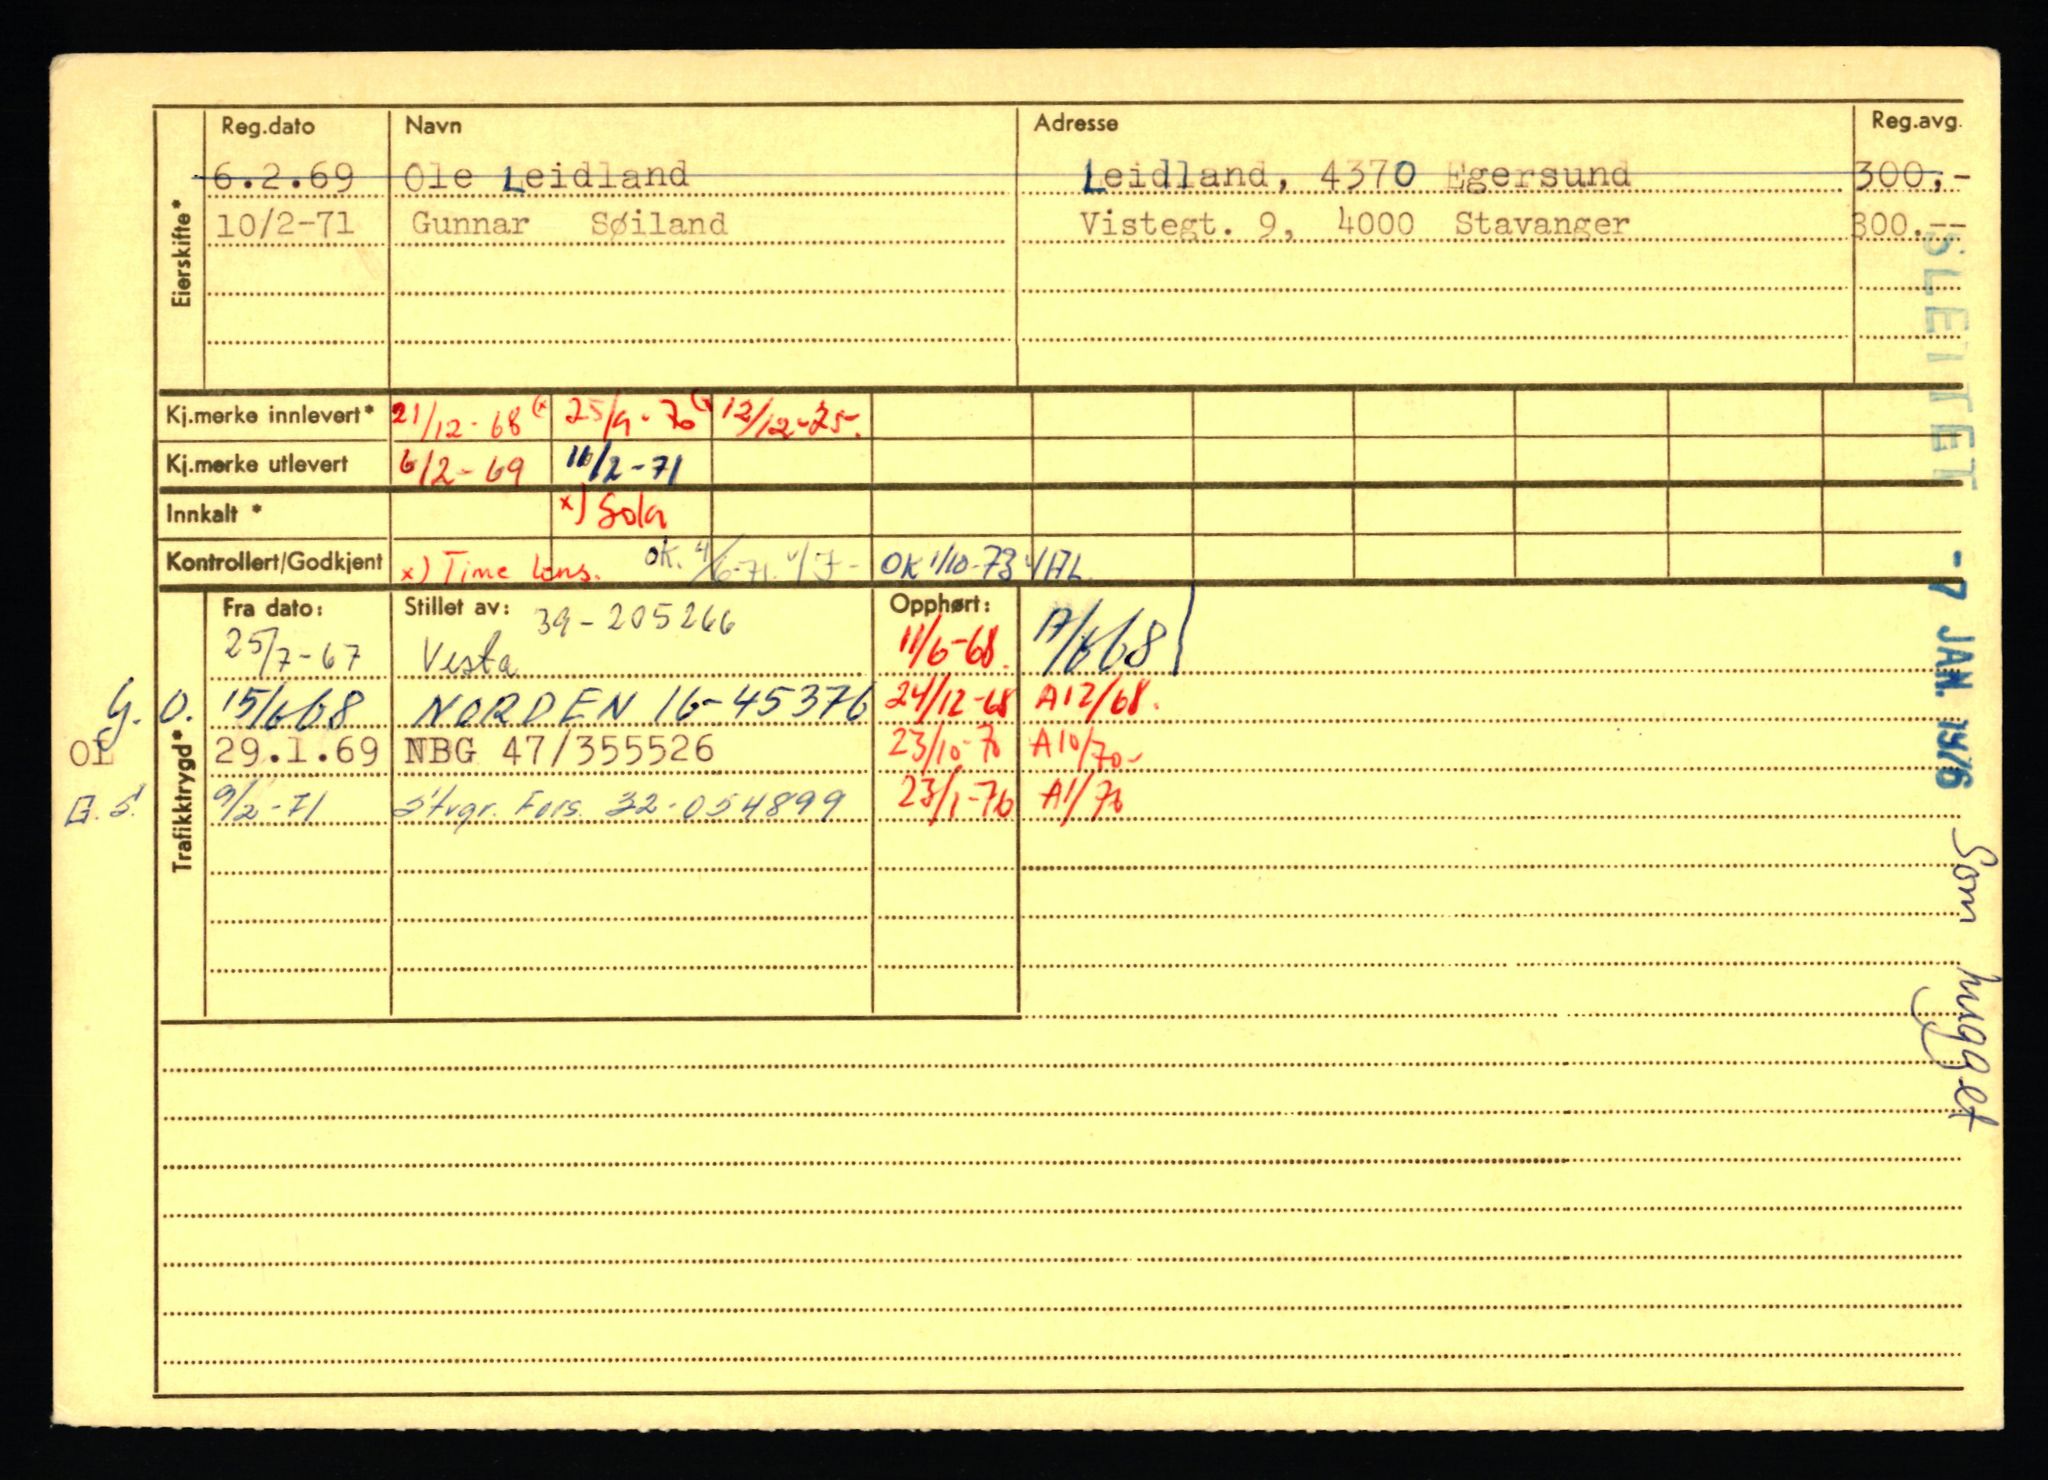 Reg.dato Navn Adresse Reg.avg.
Eierskifte*
6.2.69 Ole Leidland Leidland, 4370 Egersund 300,-
10/2-71 Gunnar Søiland Vistegt. 9, 4000 Stavanger 300.--
Kj.merke innlevert* 21/12-68 (x 25/9-70 (x 12/12-75-.
Kj.merke utlevert 6/2-69 10/2-71
Innkalt * x) Sola
Kontrollert/Godkjent x) Time lens. OK. 4/6-71. OK 1/10-73
Trafikktrygd*
Fra dato: Stillet av: Opphørt:
39-205266
25/7-67 Vesta 11/6-68. 17/6 68
G. O. 15/6 68 NORDEN 16-45376 24/12-68 A12/68.
OL 29.1.69 NBG 47/355526 23/10-70 A10/70-
G.S. 9/2-71 Stvgr. Fors. 32-054899 23/1-76 A1/76
SLETTET -7 JAN. 1976 Som hugget